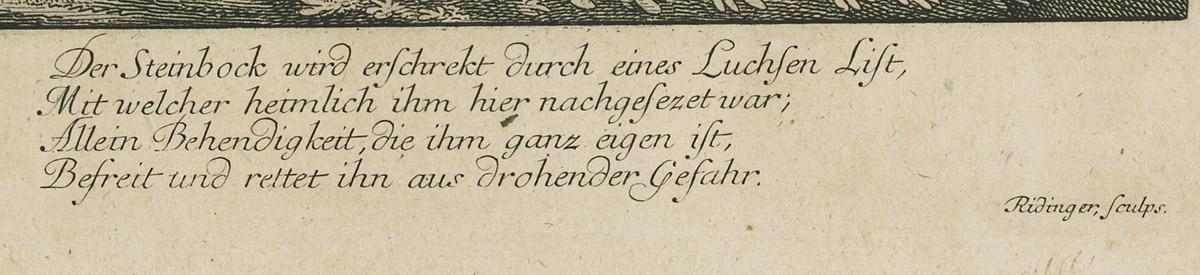 Der Steinbock wird erschrekt durch eines Luchsen List,
Mit welcher heimlich ihm hier nachgesezet war;
Allein Behendigkeit, die ihm ganz eigen ist,
Befreit und rettet ihn aus drohender Gefahr.
Ridinger, sculps.